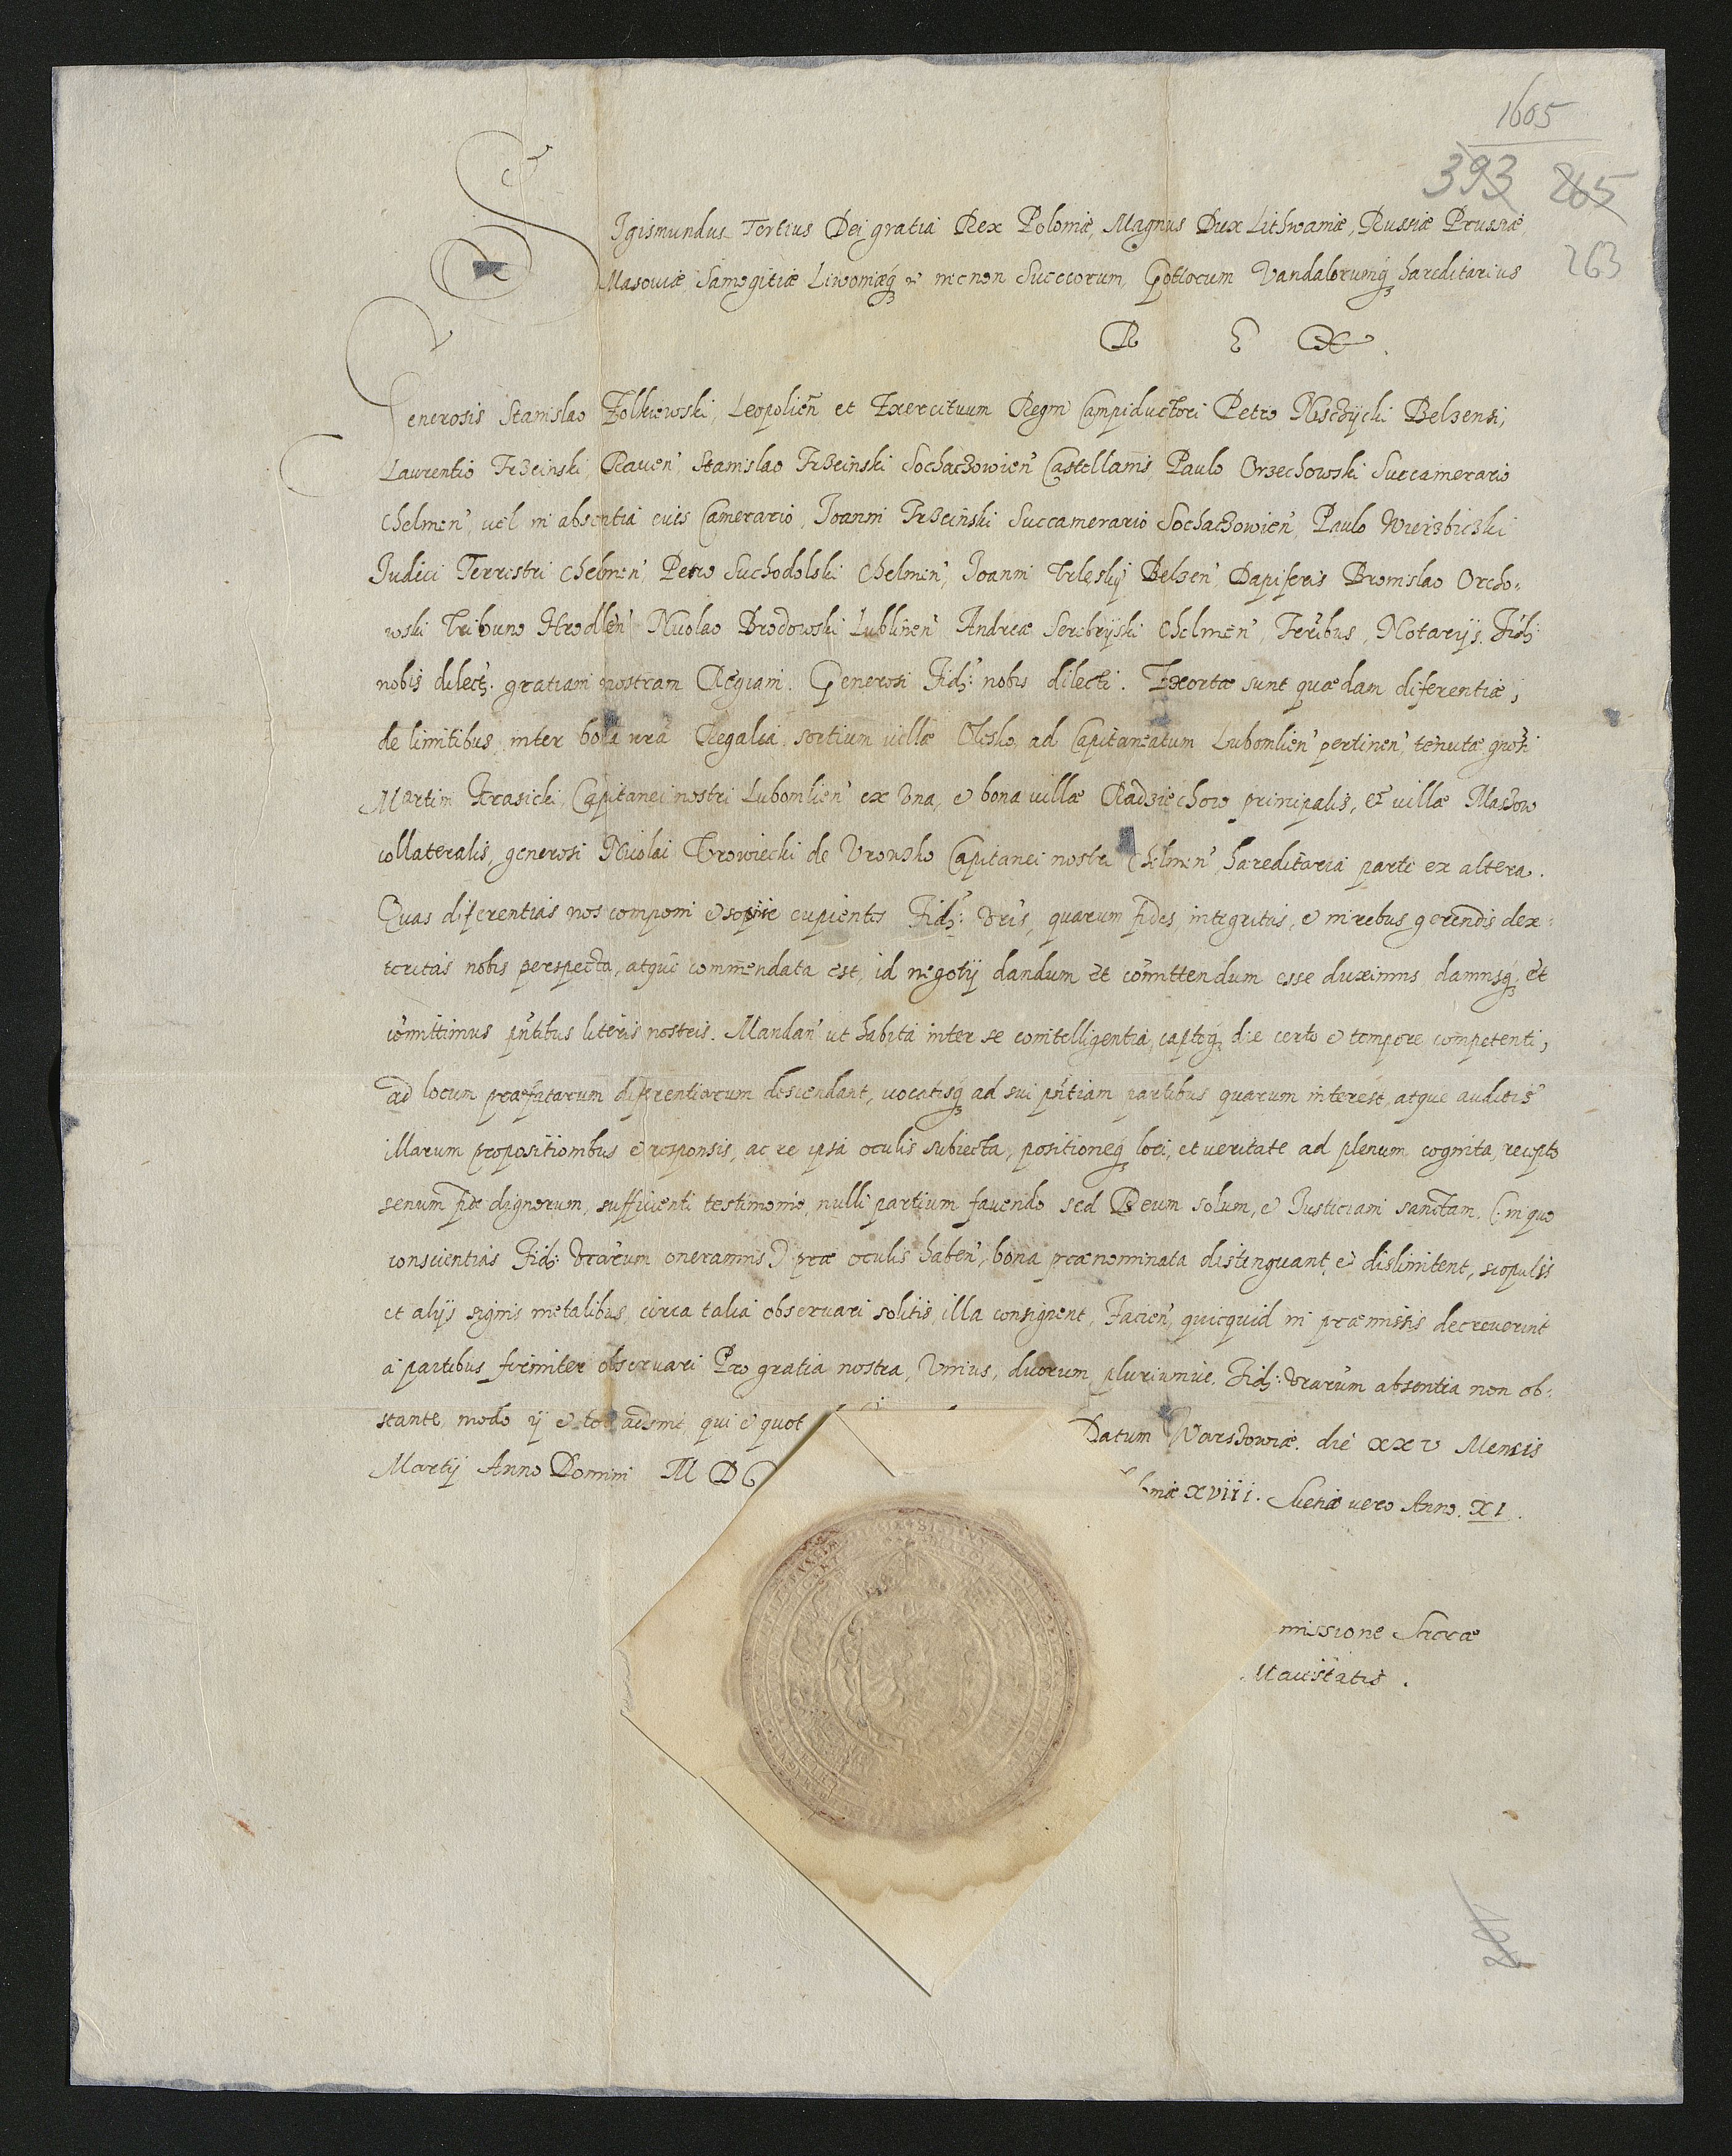 1605
393 265
263
Sigismundus Tertius Dei gratia Rex Poloniæ, Magnus Dux Lithwaniæ, Russiæ Prussiæ,
Masoviæ, Samogitiæ Livoniæq₃ nec non Sueccorum, Gottorum Vandalorumq₃ hæreditarius
R E X.
Generosis Stanislao Zolkiewski, Leopolien̄ et Exercituum Regni Campiductori Petro Belzensi,
Laurentio Trzcinski, Raven̄ Stanislao Trzcinski Sochaczowien̄ Castellanis, Paulo Orzechowski Succamerario
Chelmen̄, vel in absentia euis Camerario, Joanni Trzcinski Succamerario Sochaczowien̄, Paulo Wierzbiczki
Judici Terrestri Chelmen̄, Petro Suchodolski Chelmen̄, Joanni Belzen̄ Dapiferis Bronislao Orcho-
wski Tribuno Hrodlen̄ Nicolao Brodowski Lublinen̄ Andreæ Seribryski Chelmen̄, Terribus, Notarijs. Fid:
nobis dilect: gratiam nostram Regiam. Generosi Fid: nobis dilecti. Exortæ sunt quædam diferentiæ,
de limitibus inter bona nr̄a Regalia, sortium villæ Olesko, ad Capitaneatum Lubomlien̄ pertinen̄, tenutæ gnosi
Martini Krasicki, Capitanei nostri Lubomlien̄ ex una, & bona villæ Radziechow principalis, et villæ Maszow
collateralis, generosi Nicolai Urowiecki de Uronsko Capitanei nostri Chelmen̄, hæreditaria parte ex altera.
Quas diferentias nos componi & sopire cupientes Fid: Vris, quarum fides, integritas, & in rebus gerendis dex-
teritas nobis perspecta, atque commendata est, id negotij dandum et com̄ittendum esse duximus damusq₃ et
com̄ittimus pn̄tibus literis nostris. Mandan̄ ut habita inter se cointelligentia, captoq₃ die certo & tempore competenti,
ad locum præfatarum diferentiarum descendant, vocatisq₃ ad sui pn̄tiam partibus quarum interest, atque auditis
illarum propositionibus & responsis, ac re ipsa oculis subiecta, positioneq₃ loci, et veritate ad plenum cognita, recepto
senum fide dignorum, sufficienti testimonio, nulli partium favendo sed Deum solum, & Justiciam sanctam, (in quo
conscientias Fid: Vrarum oneramus) præ oculis haben̄, bona prænominata distinguant & dislimitent, scopulis
et alijs signis metalibus, circa talia observari solitis, illa consignent, Facien̄ quicquid in præmissis decreverint
a partibus firmiter observari Pro gratia nostra, Unius, duorum, pluriumve, Fid: Vrarum absentia non ob-
stante, modo ij & tot adsint, qui & quot Datum Warszowiæ. die XXV Mensis
Martij Anno Domini M DC niæ XVIII. Sueciæ vero Anno. XI.
missione Sacræ
Maiestatis.